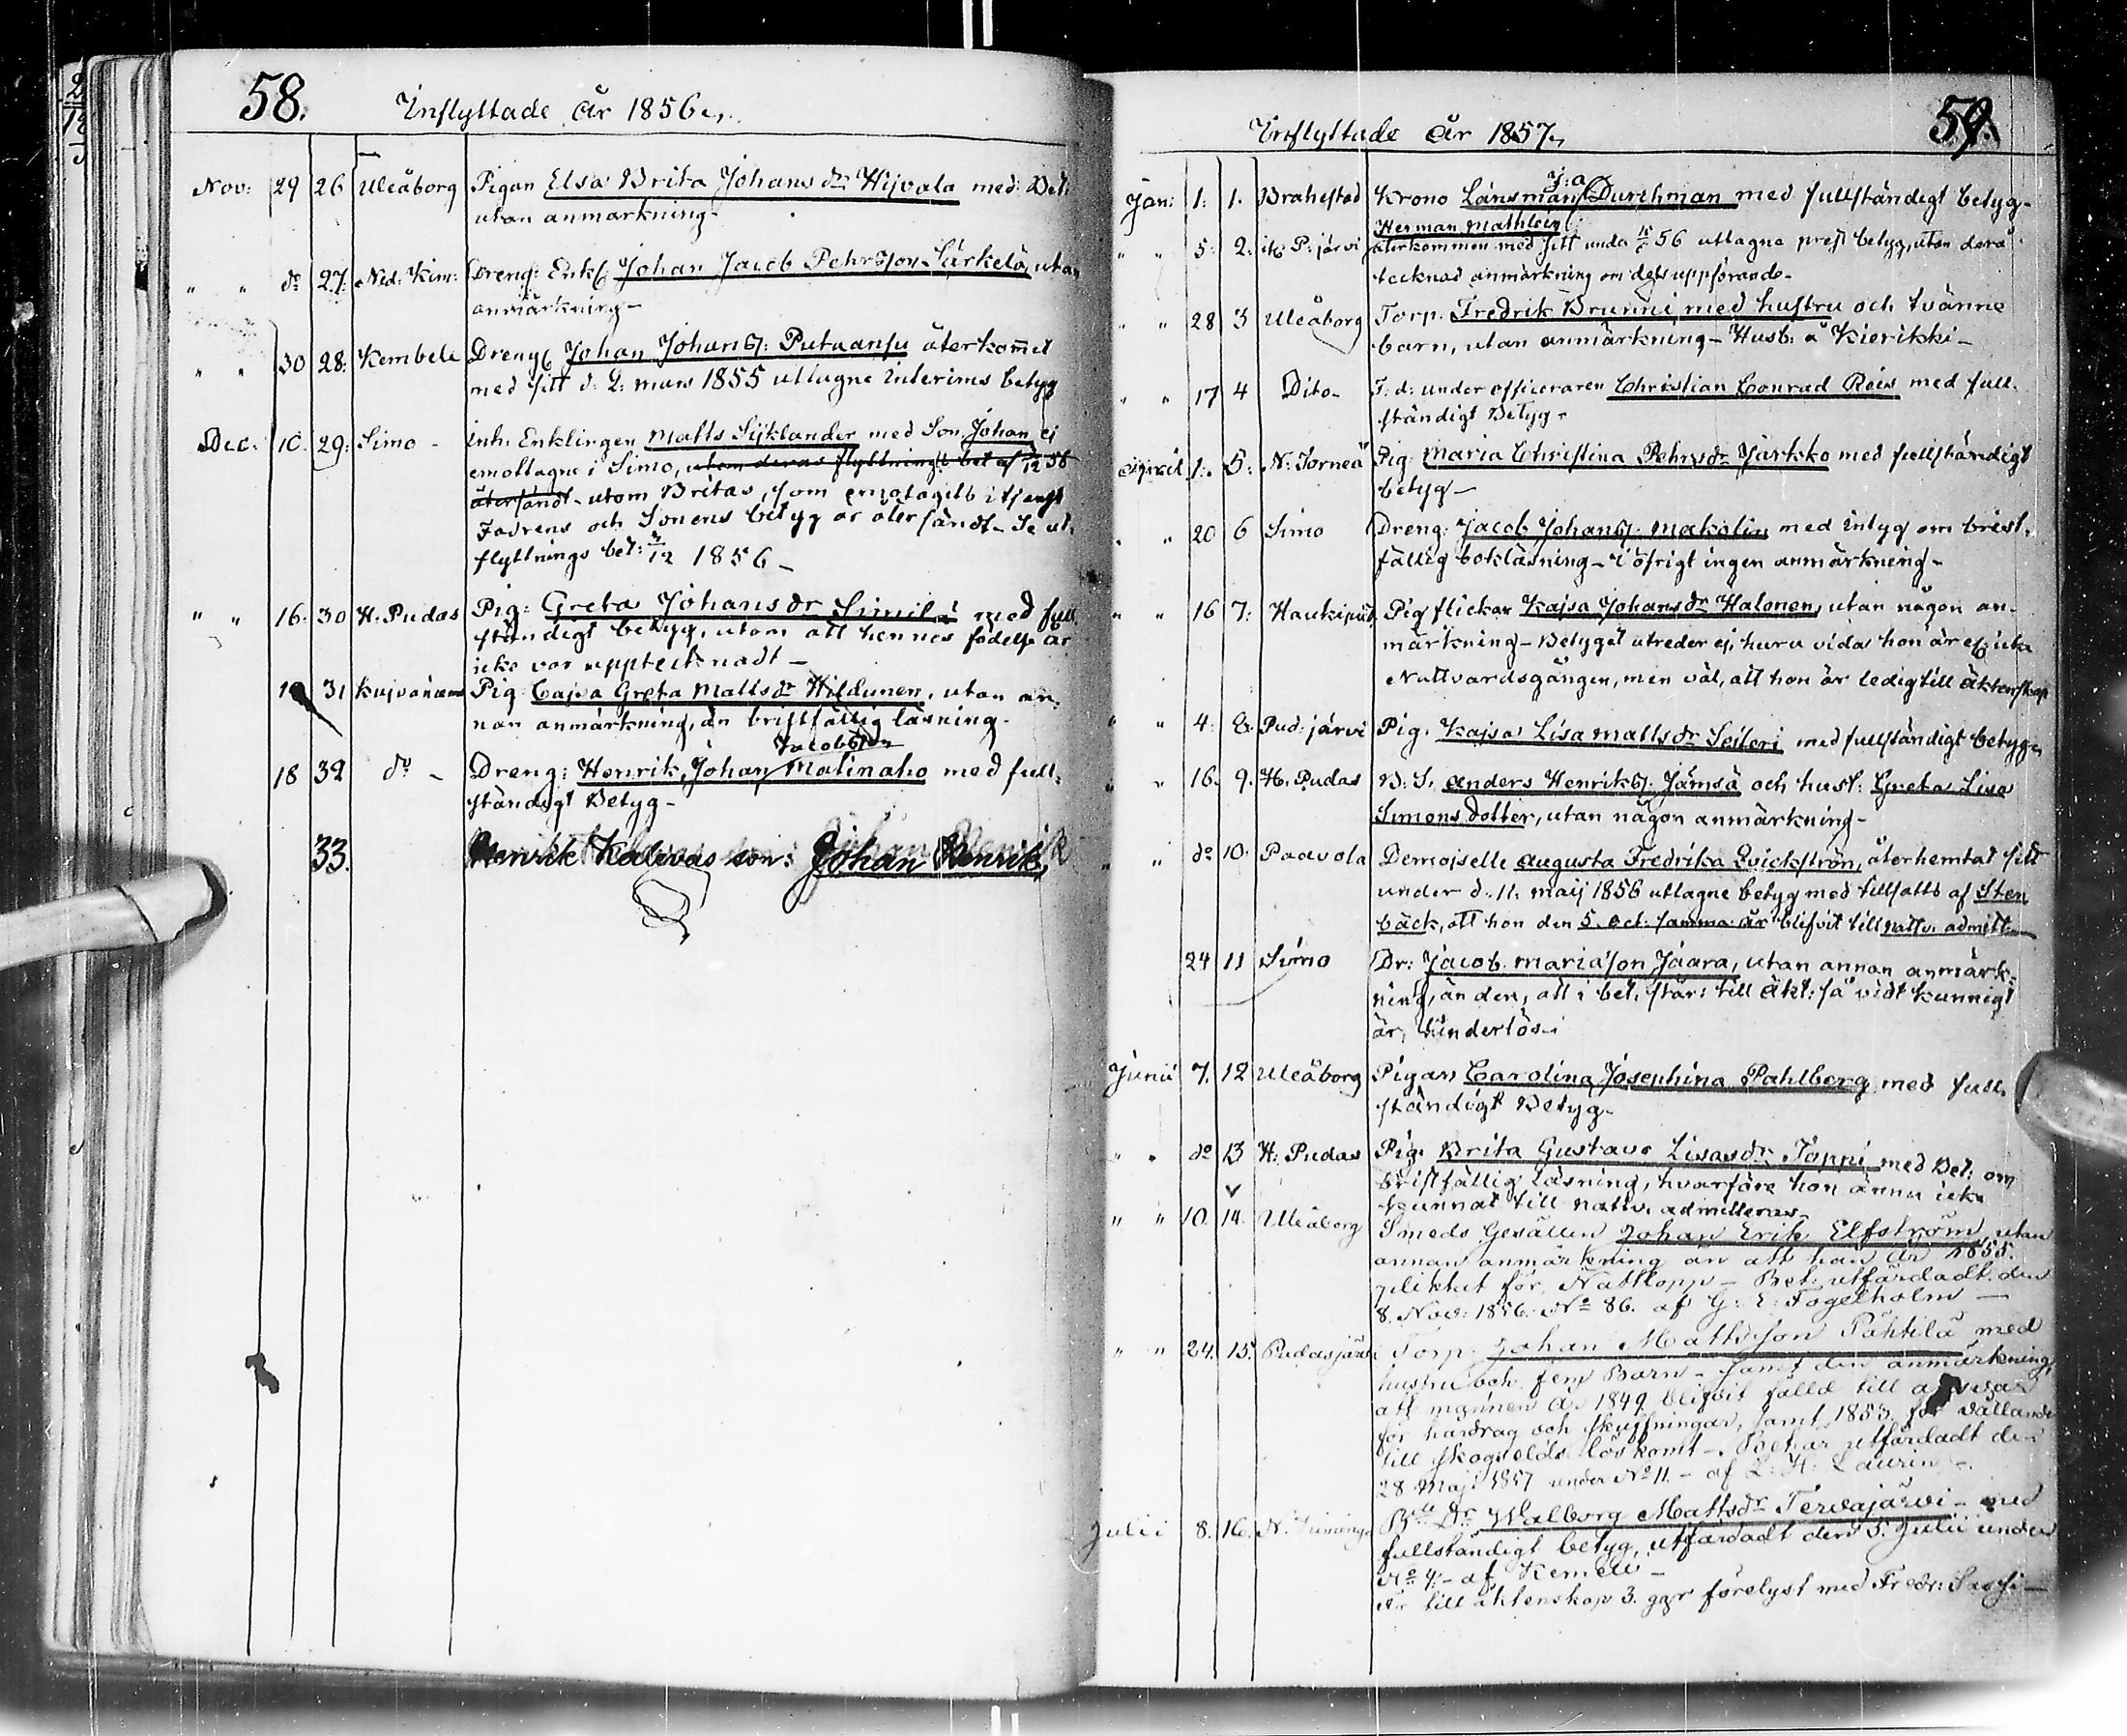 58.
Inflyttade år 1856.
Nov: 29 26 Uleåborg Pigan Elsa Brita Johans dr Hijvala med Bet:
utan anmärkning-
" " do 27: Ned: Kim: Dreng: Enkl: Johan Jacob Pehrsson Särkelä, utan
anmärkning-
" " 30 28: Kembele Dreng: Johan Johans: Putuansu återkomet
med sitt d: 2: mars 1855 uttagne interims betyg
Dec: 10. 29: Simo - Inh: Enklingen Matts Sijklander med Son Johan, ej
emottagne i Simo, utom deras flyttnings bet af 12 56
återsändt - utom Britas, som emotagits i tjenst
Fadrens och Sonens betyg är återsändt - Se ut-
flyttnings bet: 12 1856 -
" " 16. 30 H. Pudas Pig: Greta Johans dr Simila med full-
ständigt betyg, utom att hennes födelse år
icke var upptecknadt -
19 31 Kujvaniemi Pig: Cajsa Greta Matts dr Hildunen, utan an-
nan anmärkning, än bristfällig läsning-
Jacobsson
18 32 do - Dreng: Henrik, Johan Matinaho med full-
ständigt Betyg-
33. Henrik Kalevas son: Johan Henrik,
59.
Inflyttade år 1857.
J: a
Jan: 1: 1. Brahestad Krono Länsman Durchman med fullständigt betyg-
Herman Mathleiy
" " 5: 2: P: järvi återkommen med sitt under 56 uttagne prest betyg, utan derå
tecknad anmärkning om dess uppförande-
" " 28 3 Uleåborg Torp. Fredrik Brunni med hustru och tvänne
barn, utan anmärkning - Husb: å Kierikki -
" " 17 4 Dito- F: d: under officeraren Christian Conrad Reis med full-
ständigt Betyg-
April 1: 5: N: Torneå Pig: Maria Christina Pehrs dr Jarkko med fullständigt
betyg-
" " 20 6 Simo Dreng: Jacob Johans: Makalin med intyg om brist-
fällig bokläsning - i öfrigt ingen anmärkning-
" " 16 7: Haukipud. Pig flickan Kajsa Johans dr Halonen, utan någon an-
märkning - Betyget utreder ej, huru vida hon är
Nattvardsgången, men väl, att hon är ledig till äktenskap
" " 4. 8. Pud: järvi Pig. Kajsa Lisa Matts dr Seiteri med fullständigt betyg
" " 16. 9. H. Pudas B: S. Anders Henriks: Jämsä och hust: Greta Lisa
Simons dotter, utan någon anmärkning-
" " do 10. Paavola Demoiselle Augusta Fredrika Qvickström, återhemtat sitt
under d. 11: maij 1856 uttagne betyg med tillsatts af Sten
bäck, att hon den 5. oct. samma år blifvit till nattv. admitt.
24 11 Simo Dr: Jacob Mariason Jaara, utan annan anmärk-
ning, än den, att i bet. står: till äkt: så vidt kunnigt
är, hinderlös-
Junii 7. 12 Uleåborg Pigan Carolina Josephina Pahlberg med full-
ständigt Betyg-
" " do 13 H: Pudas Pig. Brita Gustava Lisas dr Toppi med Bet: om
bristfällig läsning, hvarföre hon ännu icke
kunnat till nattv. admitteras-
" " 10. 14. Uleåborg Smeds Gesällen Johan Erik Elfström, utan
annan anmärkning än att han år 1855.
pliktat för Nattlopp - Bet: utfärdadt den
8. Nov: 1856. No 86. af G: E: Fogelholm -
" " 24. 15. Pudasjärvi Torp. Johan Mathisson Pähtilä med
hustru och fem Barn - samt den anmärkning,
att mannen år 1849 blifvit fälld till ansvar
för hårdrag och skuffningar, samt 1853 för vållande
till skogselds löskomst - Bet är utfärdadt den
28 Maji 1857 under No 11. - af L: H: Laurin -
Julii 8. 16. N. Kiiminge Bde Dr Walborg Matts dr Tervajärvi - med
fullständigt betyg, utfärdadt den 5. Julii under
No 4. - af Kemell -
Är till äktenskap 3. ggr förelyst med Fredr: